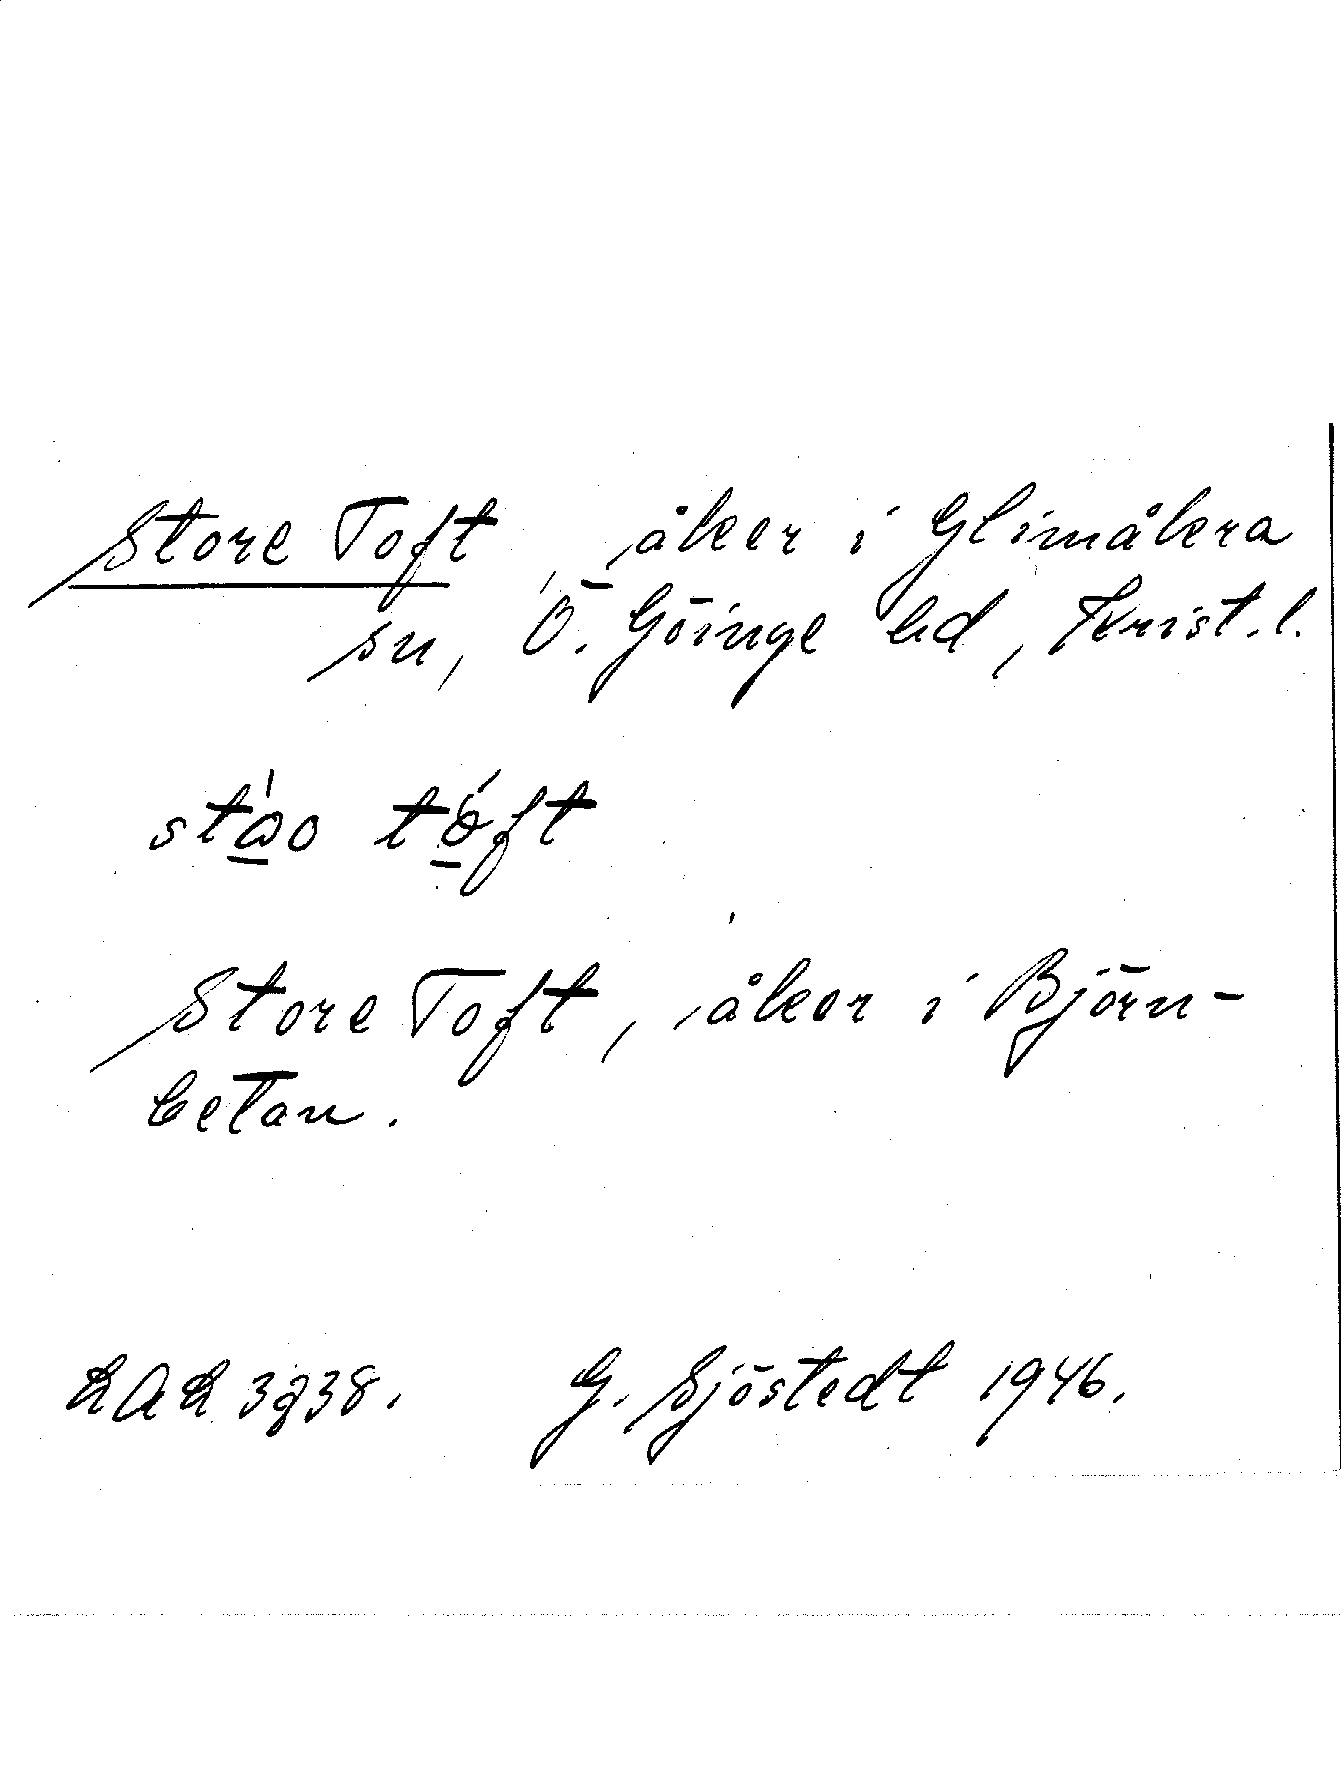 Store Toft, åker i Glimåkra
sn, Ö. Göinge hd, Krist. l.
Store Toft, åker i Björn-
betan.
LAL 3238. G. Sjöstedt 1946.